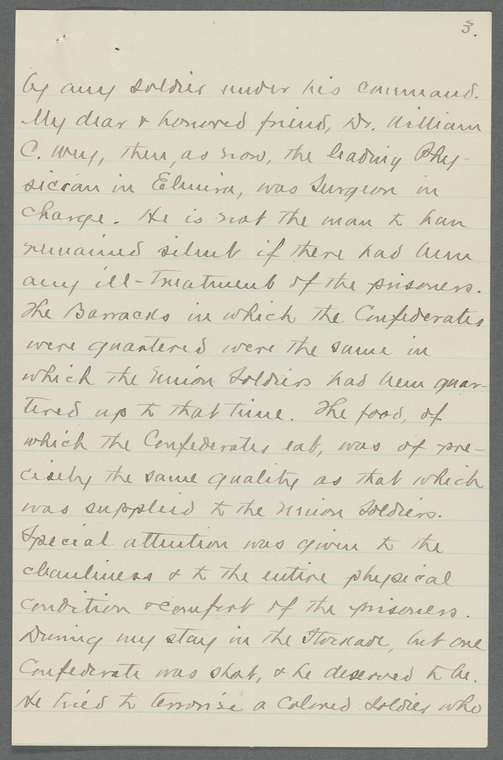 3.
by any soldier under his command.
My dear & honored friend, Dr. William
C. Wey, then, as now, the leading Phy-
sician in Elmira, was Surgeon in
Charge. He is not the man to have
remained silent if there had been
any ill-treatment of the prisoners.
The Barracks in which the Confederates
were quartered were the same in
which the Union Soldiers had been quar-
tered up to that time. The food, of
which the Confederates eat, was of pre-
cisely the same quality as that which
was supplied to the Union Soldiers.
Special attention was given to the
cleanliness & to the entire physical
condition & comfort of the prisoners.
During my stay in the Stockade, but one
Confederate was shot, & he deserved to be.
He tried to terrorise a Colored Soldier who